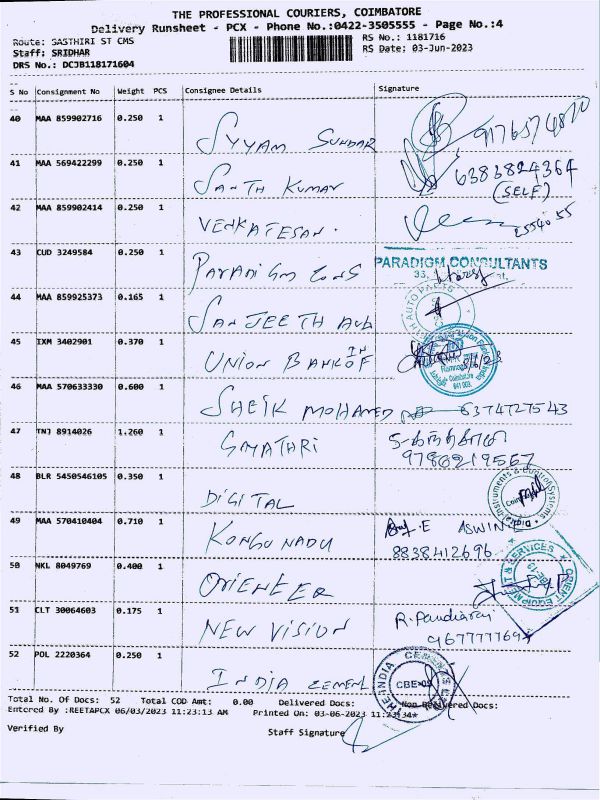 THE PROFESSIONAL COURIERS, COIMBATORE
Delivery Runsheet - PCX - Phone No.:0422-3505555 - Page No.:4
Route: SASTHIRI ST CMS RS No.: 1181716
Staff: SRIDHAR RS Date: 03-Jun-2023
DRS No.: DCJB118171604
S No Consignment No Weight PCS Consignee Details Signature
40 MAA 859902716 0.250 1 SYYAM SUNDAR
41 MAA 569422299 0.250 1 SANTH KUMAR 6383824364
(SELF)
42 MAA 859902414 0.250 1 VENKATESAN.
43 CUD 3249584 0.250 1 PARADIGM CONS PARADIGM CONSULTANTS
44 MAA 859925373 0.165 1 SANJEETH AUTO
45 IXM 3402901 0.370 1 UNION BANK OF IN
46 MAA 570633330 0.600 1 SHEIK MOHAMED 6374727543
47 TNJ 8914026 1.260 1 GAYATHRI
48 BLR 5450546105 0.350 1 DIGITAL
49 MAA 570410404 0.710 1 KONGU NADU E ASWIN
8838412696
50 NKL 8049769 0.400 1 ORIENTER
51 CLT 30064603 0.175 1 NEW VISION R. Pandiaraj
52 POL 2220364 0.250 1 INDIA CEMENT CBE-09
Total No. Of Docs: 52 Total COD Amt: 0.00 Delivered Docs: Non Delivered Docs:
Entered By :REETAPCX 06/03/2023 11:23:13 AM Printed On: 03-06-2023 11:23:34
Verified By Staff Signature